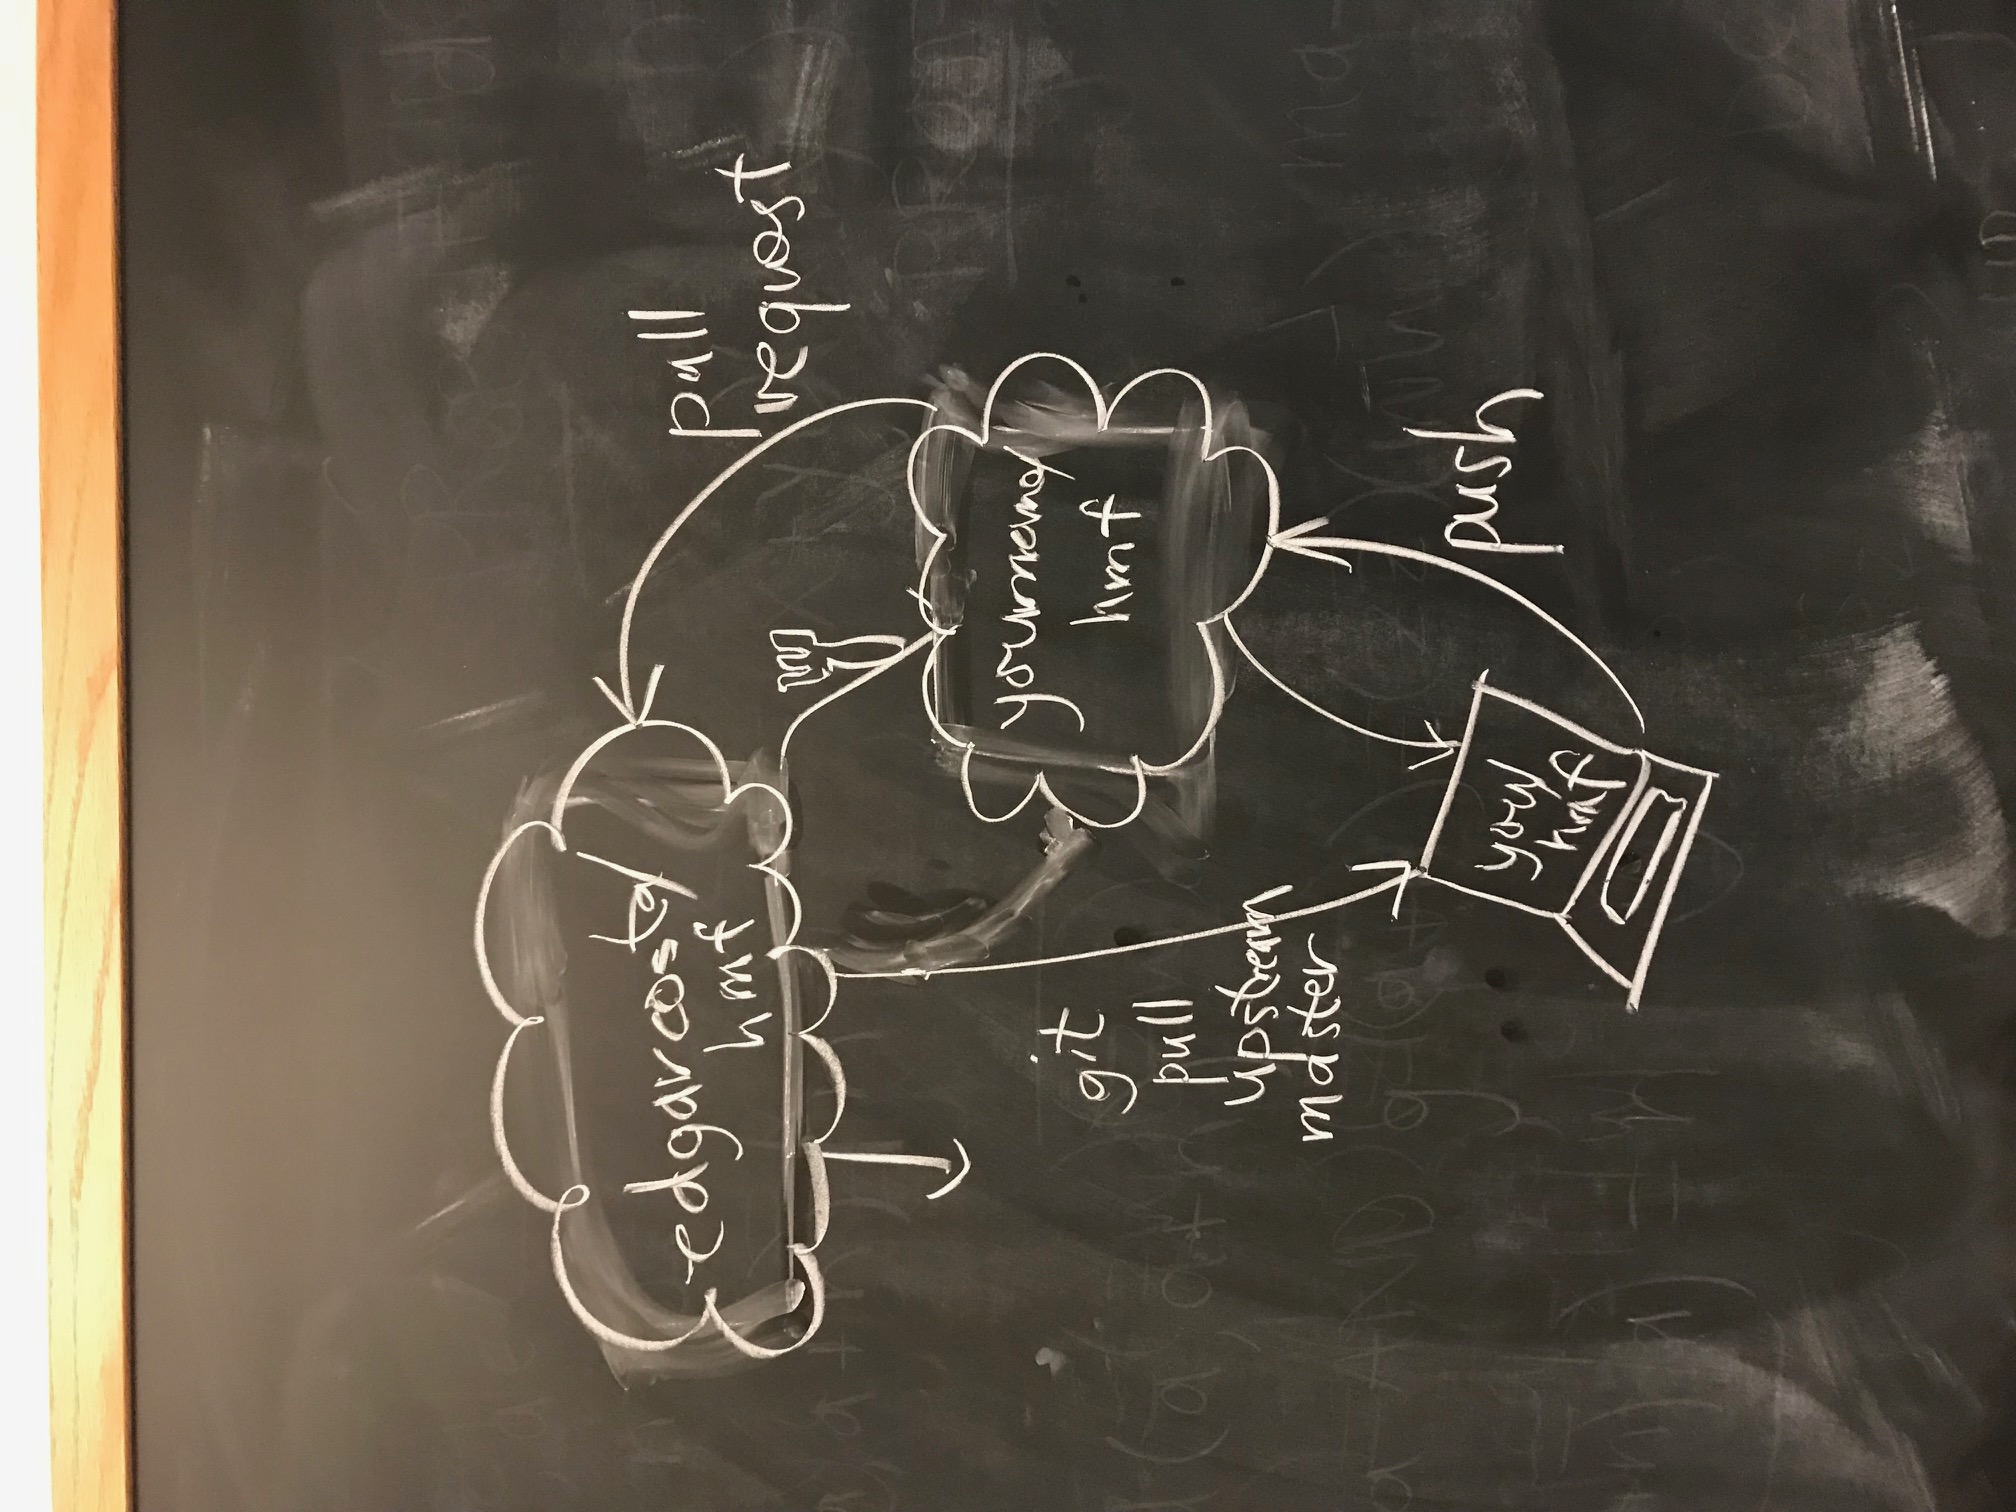 edgarcosta/
hmf
pull
request
yourname/
hmf
git
pull
upstream
master
you/
hmf
push